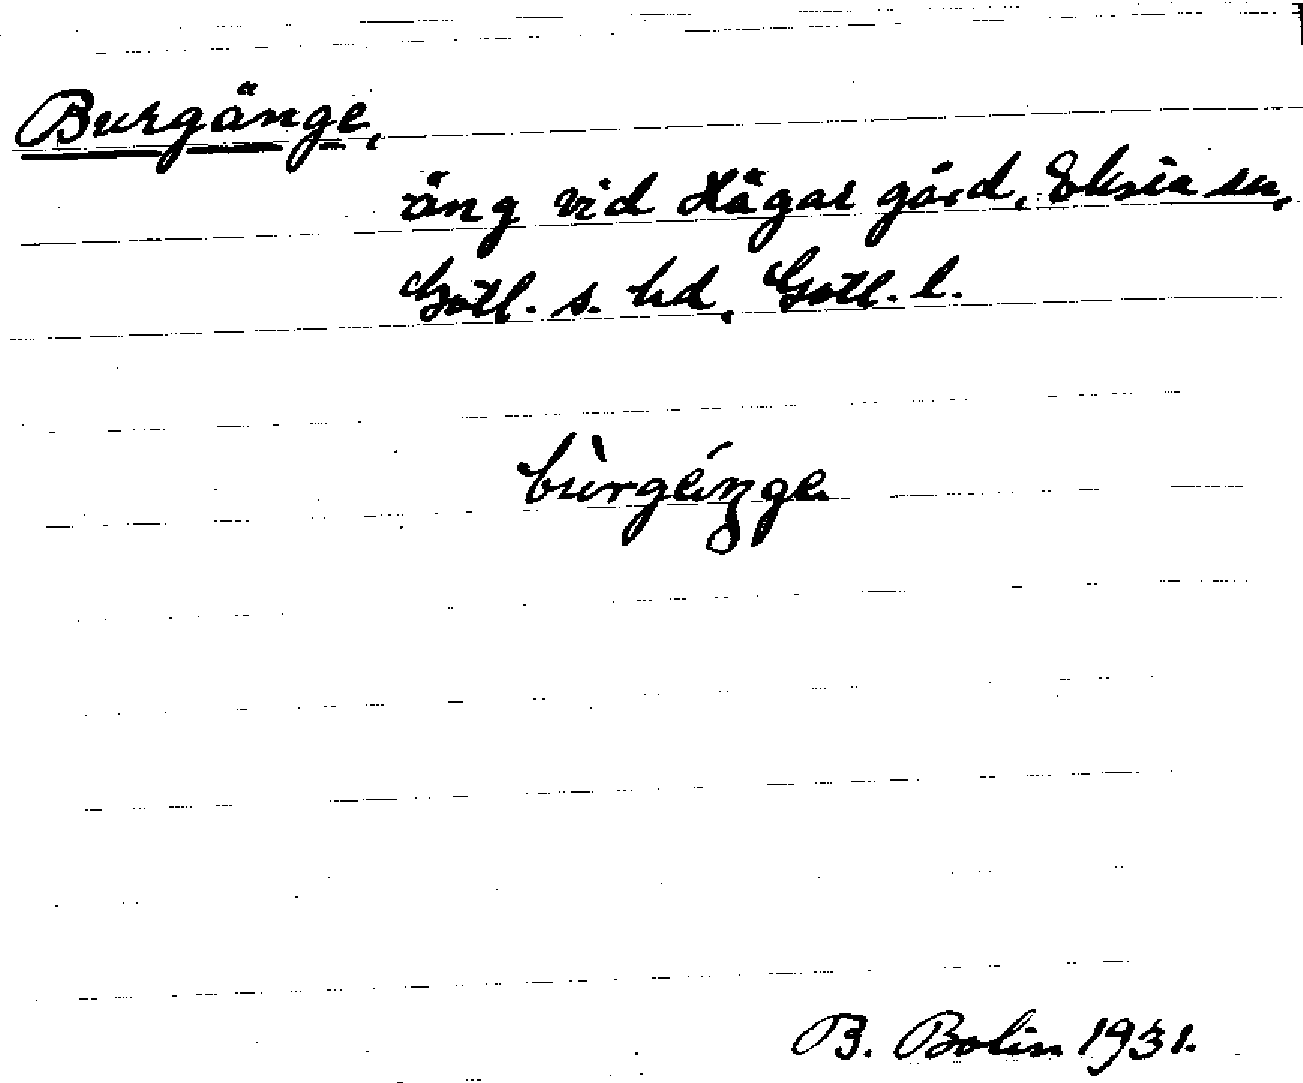 Burgänge,
äng vid Hägar gård, Eksta sn,
Gotl. s. hd, Gotl. l.
bùrgéŋge
B. Bolin 1931.